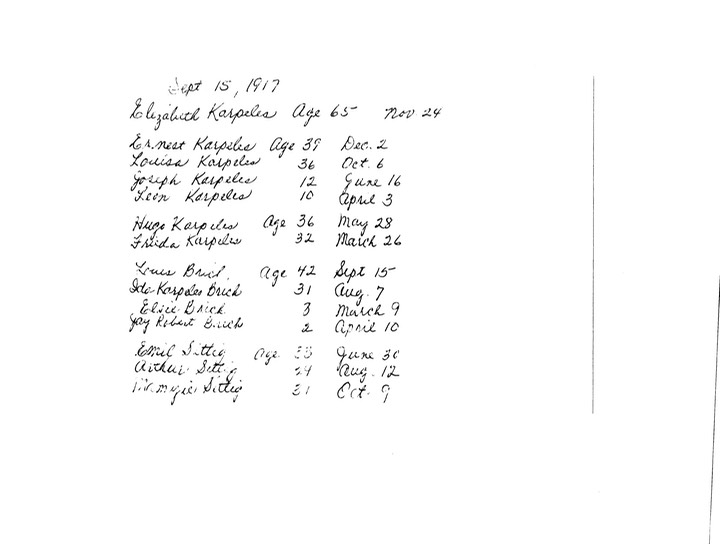 Sept 15, 1917
Elizabeth Karpeles Age 65 Nov 24
Ernest Karpeles Age 39 Dec. 2
Louisa Karpeles 36 Oct. 6
Joseph Karpeles 12 June 16
Leon Karpeles 10 April 3
Hugo Karpeles Age 36 May 28
Frieda Karpeles 32 March 26
Louis Brich Age 42 Sept 15
Ida Karpeles Brich 31 Aug. 7
Elsie Brich 3 March 9
Jay Robert Brich 2 April 10
Emil Sittig Age June 30
Arthur Sittig Aug. 12
Sittig Oct. 9